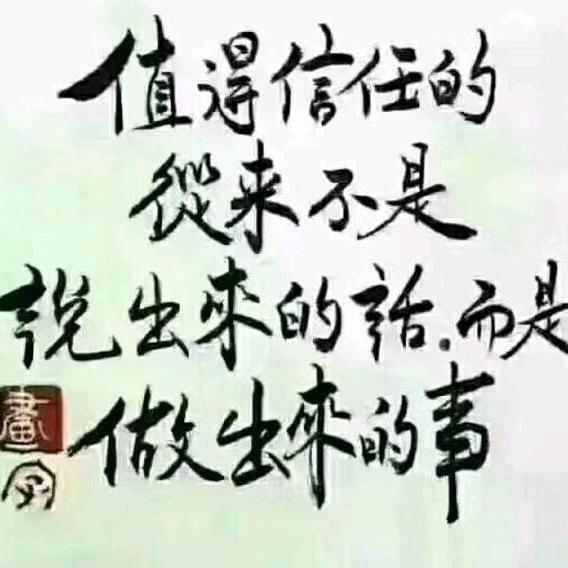 值得信任的
從来不是
說出來的話.而是
做出來的事
畫字